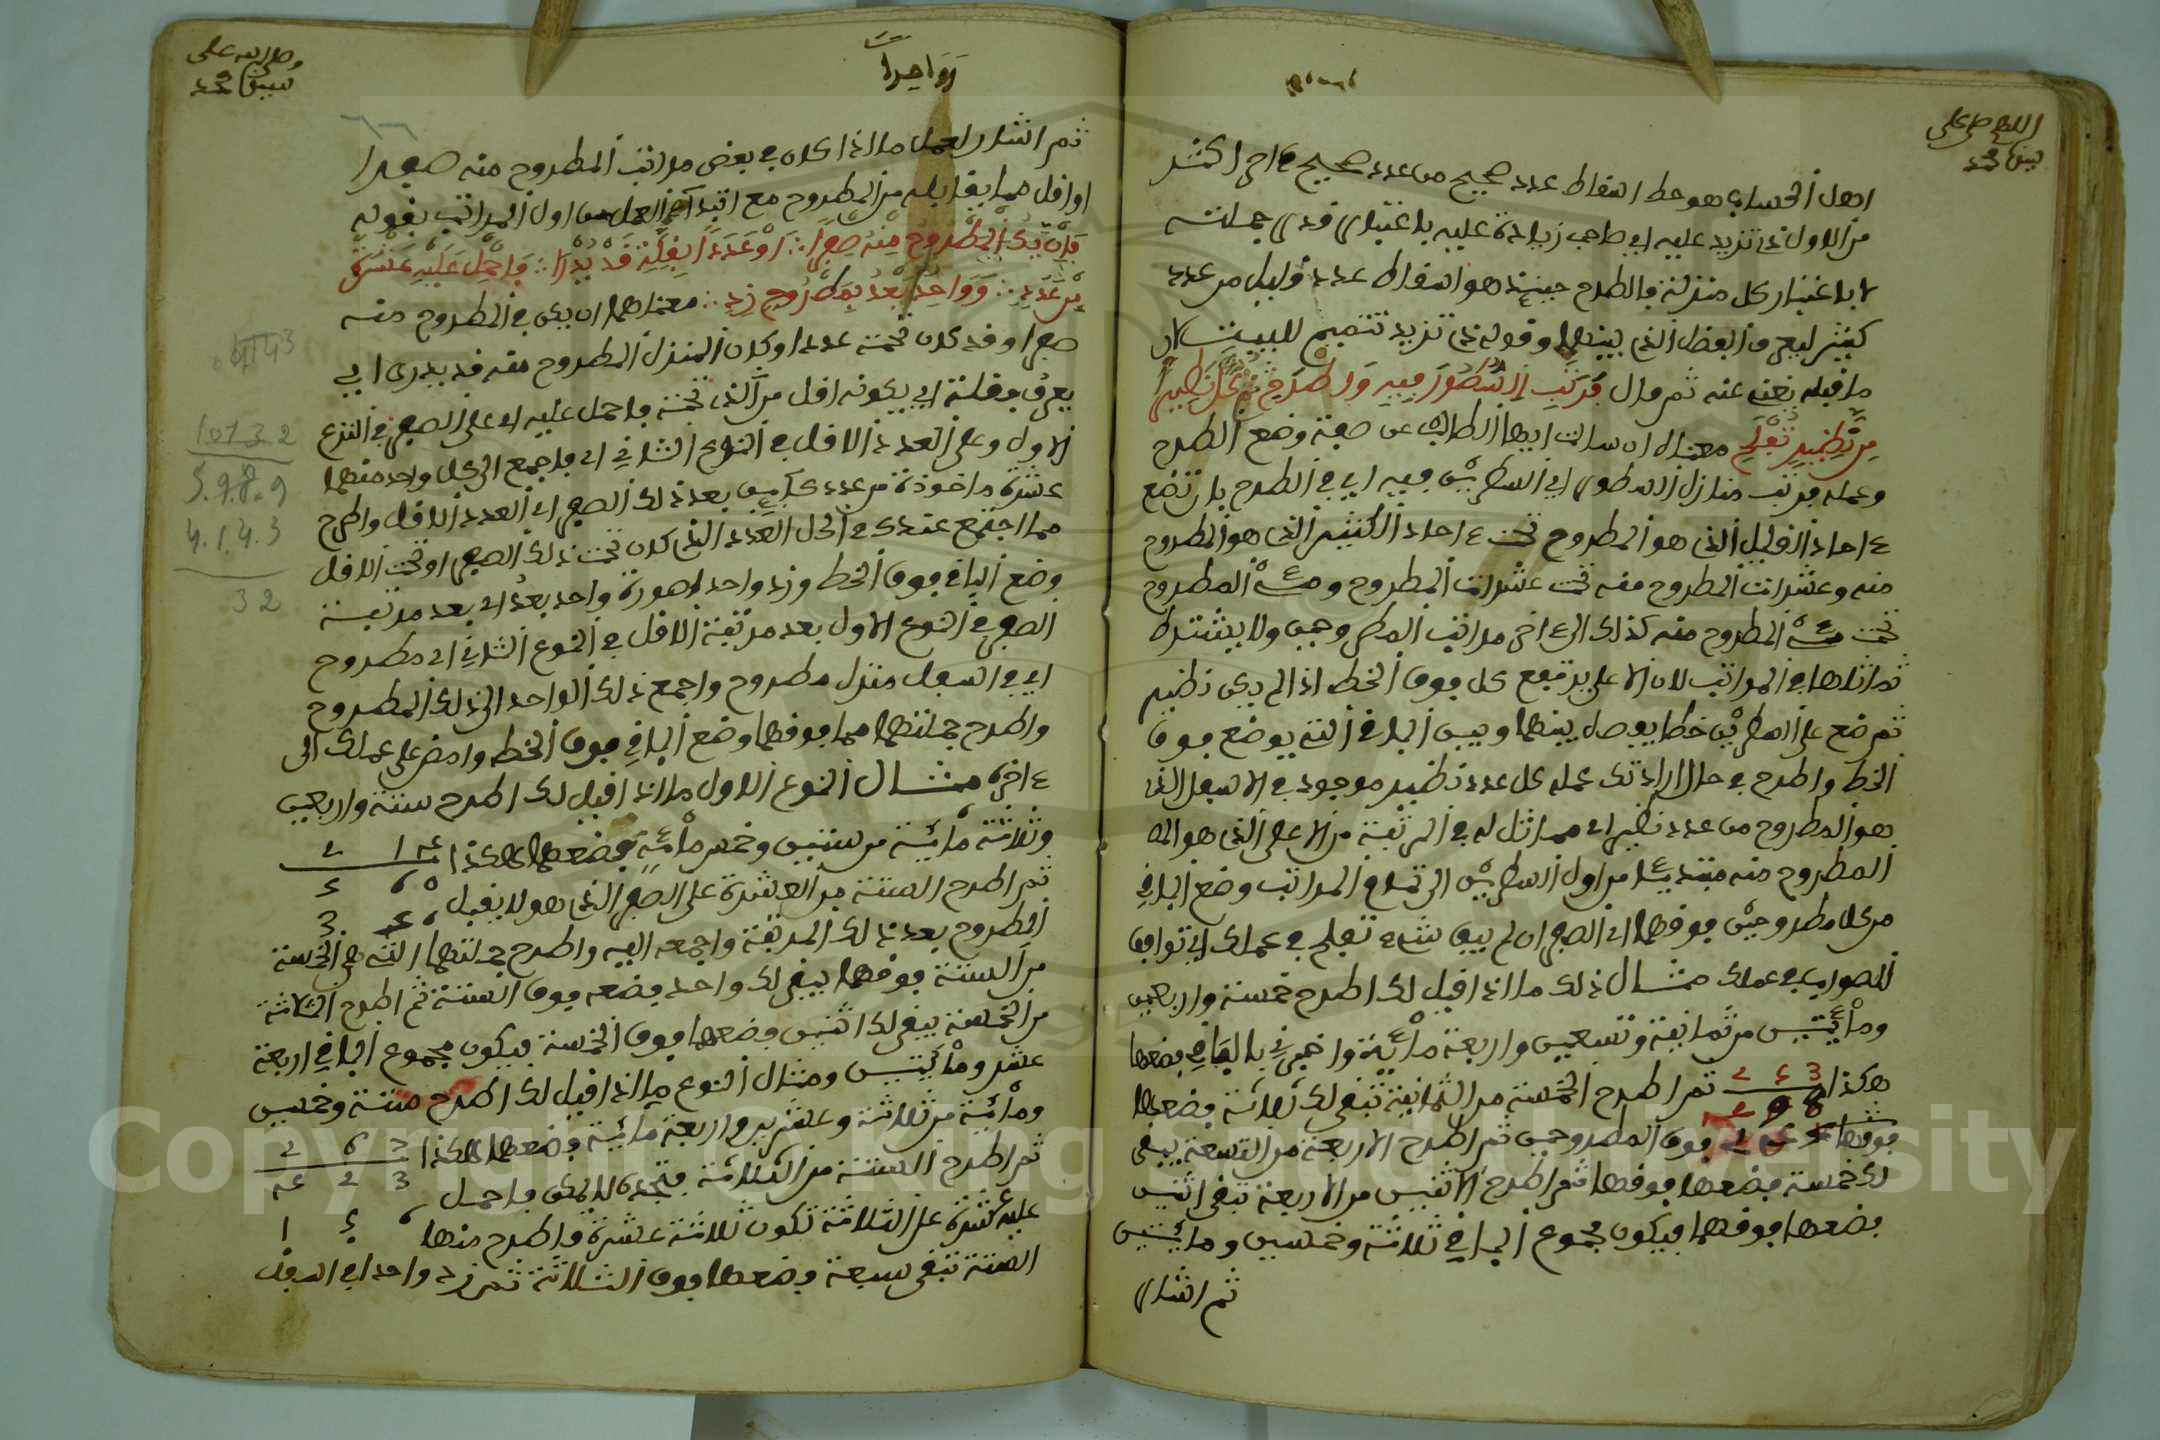 اللهم صل على
سيدنا محمد
اهل الحساب هو حط اسقاط عدد صحيح من عدد صحيح ءاخر اكثر
من الاول ذي تزيد عليه اي صاحب زيادة عليه باعتبار قدر جملته
لا باعتبار كل منزلة فالطرح حينئذ هو اسقاط عدد قليل من عدد
كثير ليعرف الفضل الذي بينهما وقوله ذي تزيد تتميم للبيت لان
ما قبله يغني عنه ثم قال فرتب السطور فيه واطرح كل نظير
من نظير تفلح معناه ان سالت ايها الطالب عن صفة وضع الطرح
وعمله فرتب منازل السطور اي السطرين فيه اي في الطرح بان تضع
ءاحاد القليل الذي هو المطروح تحت ءاحاد الكثير الذي هو المطروح
منه وعشرات المطروح منه تحت عشرات المطروح ومئة المطروح
تحت مئة المطروح منه كذلك الى ءاخر مراتب المطروحين ولا يشترط
تماثلها في المراتب لان الاعلى يرتفع كل فوق الخط اذا لم يكن نظير
ثم ضع على السطرين خطا يوصل بينهما وبين الباقي الذي يوضع فوق
الخط واطرح في حال ارادتك عمله كل عدد نظير موجود في الاسفل الذي
هو المطروح من عدد نظير اي مماثل له في المرتبة من الاعلى الذي هو
المطروح منه مبتدئا من اول السطرين الى تمام المراتب وضع الباقي
من كل مطروحين فوقهما اي الصفر ان لم يبق شيء تفلح في عملك اي توافق
الصواب في عملك مثال ذلك ما اذا قيل لك اطرح خمسة واربعين
ومائتين من ثمانية وتسعين واربعة مائة واخبرني بالباقي فضعها
هكذا ثم اطرح الخمسة من الثمانية تبقى لك ثلاثة فضعها
فوق المطروحين ثم اطرح الاربعة من التسعة يبقى
لك خمسة فضعها فوقها ثم اطرح الاثنين من الاربعة تبقى اثنين
فضعها فوقهما فيكون مجموع الباقي ثلاثة وخمسين ومائتين
ثم اشار
وصلى الله على
سيدنا محمد
وواحدا
ثم اشار لعمل ما اذا كان في بعض مراتب المطروح منه صفرا
او اقل مما يقابله من المطروح مع ابتداء العمل من اول المراتب بقوله
فان يك المطروح منه صفرا او عددا بقلة قد يدرا فاحمل عليه عشرة
من عدد وواحد بعد بمطروح زد معناهما ان يكن في المطروح منه
صفرا وقد كان تحته عددا وكان المنزل المطروح منه قد يدرى اي
يعرف بقلة اي بكونه اقل من الذي تحته فاحمل عليه اي على الصفر في النوع
الاول وعلى العدد الاقل في النوع الثاني اي فاجمع الى كل واحد منهما
عشرة ماخوذة من عدد كاين بعد ذلك الصفر اي العدد الاقل واطرح
مما اجتمع عندك في الحال العدد الذي كان تحت ذلك الصفر او تحت الاقل
وضع الباقي فوق الخط وزد واحدا وهو زد واحد بعد اي بعد مرتبة
الصفر في النوع الاول بعد مرتبة الاقل في النوع الثاني اي مطروح
اي في اسفل منزل مطروح واجمع ذلك الواحد الى ذلك المطروح
واطرح جملتهما مما فوقهما وضع الباقي فوق الخط وامض على عملك الى
ءاخره مثال النوع الاول ما اذا قيل لك اطرح ستة واربعين
وثلاثة مائة من ستين وخمس مائة فضعهما هكذا
ثم اطرح الستة من العشرة على الصفر الذي هو لا يقبل
المطروح بعد تلك المرتبة واجمعه اليه واطرح جملتهما التي هي الخمسة
من الستة فوقهما يبقى لك واحد فضعه فوق الستة ثم اطرح الثلاثة
من الخمسة يبقى لك اثنين فضعها فوق الخمسة فيكون مجموع الباقي اربعة
عشر ومائتين ومثال النوع ما اذا قيل لك اطرح ستة وخمسين
ومائة من ثلاثة وعشرين واربعة مائة فضعهما هكذا
ثم اطرح الستة من الثلاثة فتجده لا يمكن فاحمل
عليه عشرة على الثلاثة تكون ثلاثة عشرة واطرح منها
الستة تبقى سبعة فضعها فوق الثلاثة ثم زد واحدا في اسفل